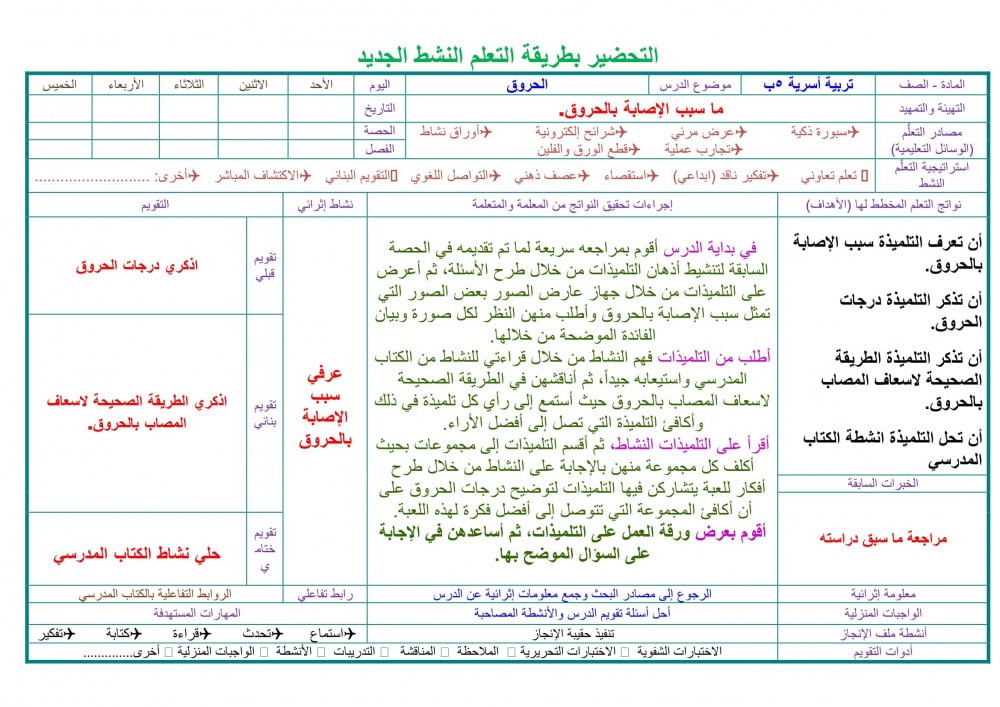 التحضير بطريقة التعلم النشط الجديد
المادة - الصف
تربية أسرية ٥ب
موضوع الدرس
الحروق
اليوم
الأحد
الاثنين
الثلاثاء
الأربعاء
الخميس
التهيئة والتمهيد
ما سبب الإصابة بالحروق.
التاريخ
مصادر التعلُّم
(الوسائل التعليمية)
✈سبورة ذكية ✈عرض مرئي ✈شرائح إلكترونية ✈أوراق نشاط
✈تجارب عملية ✈قطع الورق والفلين
الحصة
الفصل
استراتيجية التعلُّم
النشط
▯ تعلم تعاوني ✈تفكير ناقد (ابداعي) ✈استقصاء ✈عصف ذهني ✈التواصل اللغوي ▯التقويم البنائي ✈الاكتشاف المباشر ✈أخرى: ...........................
نواتج التعلم المخطط لها (الأهداف)
إجراءات تحقيق النواتج من المعلمة والمتعلمة
نشاط إثرائي
التقويم
أن تعرف التلميذة سبب الإصابة
بالحروق.
أن تذكر التلميذة درجات
الحروق.
أن تذكر التلميذة الطريقة
الصحيحة لاسعاف المصاب
بالحروق.
أن تحل التلميذة انشطة الكتاب
المدرسي
الخبرات السابقة
مراجعة ما سبق دراسته
في بداية الدرس أقوم بمراجعه سريعة لما تم تقديمه في الحصة
السابقة لتنشيط أذهان التلميذات من خلال طرح الأسئلة، ثم أعرض
على التلميذات من خلال جهاز عارض الصور بعض الصور التي
تمثل سبب الإصابة بالحروق وأطلب منهن النظر لكل صورة وبيان
الفائدة الموضحة من خلالها.
أطلب من التلميذات فهم النشاط من خلال قراءتي للنشاط من الكتاب
المدرسي واستيعابه جيداً، ثم أناقشهن في الطريقة الصحيحة
لاسعاف المصاب بالحروق حيث أستمع إلى رأي كل تلميذة في ذلك
وأكافئ التلميذة التي تصل إلى أفضل الأراء.
أقرأ على التلميذات النشاط، ثم أقسم التلميذات إلى مجموعات بحيث
أكلف كل مجموعة منهن بالإجابة على النشاط من خلال طرح
أفكار للعبة يتشاركن فيها التلميذات لتوضيح درجات الحروق على
أن أكافئ المجموعة التي تتوصل إلى أفضل فكرة لهذه اللعبة.
أقوم بعرض ورقة العمل على التلميذات، ثم أساعدهن في الإجابة
على السؤال الموضح بها.
عرفي
سبب
الإصابة
بالحروق
تقويم
قبلي
اذكري درجات الحروق
تقويم
بنائي
اذكري الطريقة الصحيحة لاسعاف
المصاب بالحروق.
تقويم
ختام
ي
حلي نشاط الكتاب المدرسي
معلومة إثرائية
الرجوع إلى مصادر البحث وجمع معلومات إثرائية عن الدرس
رابط تفاعلي
الروابط التفاعلية بالكتاب المدرسي
الواجبات المنزلية
أحل أسئلة تقويم الدرس والأنشطة المصاحبة
المهارات المستهدفة
أنشطة ملف الإنجاز
تنفيذ حقيبة الإنجاز
✈استماع ✈تحدث ✈قراءة ✈كتابة ✈تفكير
أدوات التقويم
الاختبارات الشفوية ▯ الاختبارات التحريرية ▯ الملاحظة ▯ المناقشة ▯ التدريبات ▯ الأنشطة ▯ الواجبات المنزلية ▯ أخرى..............